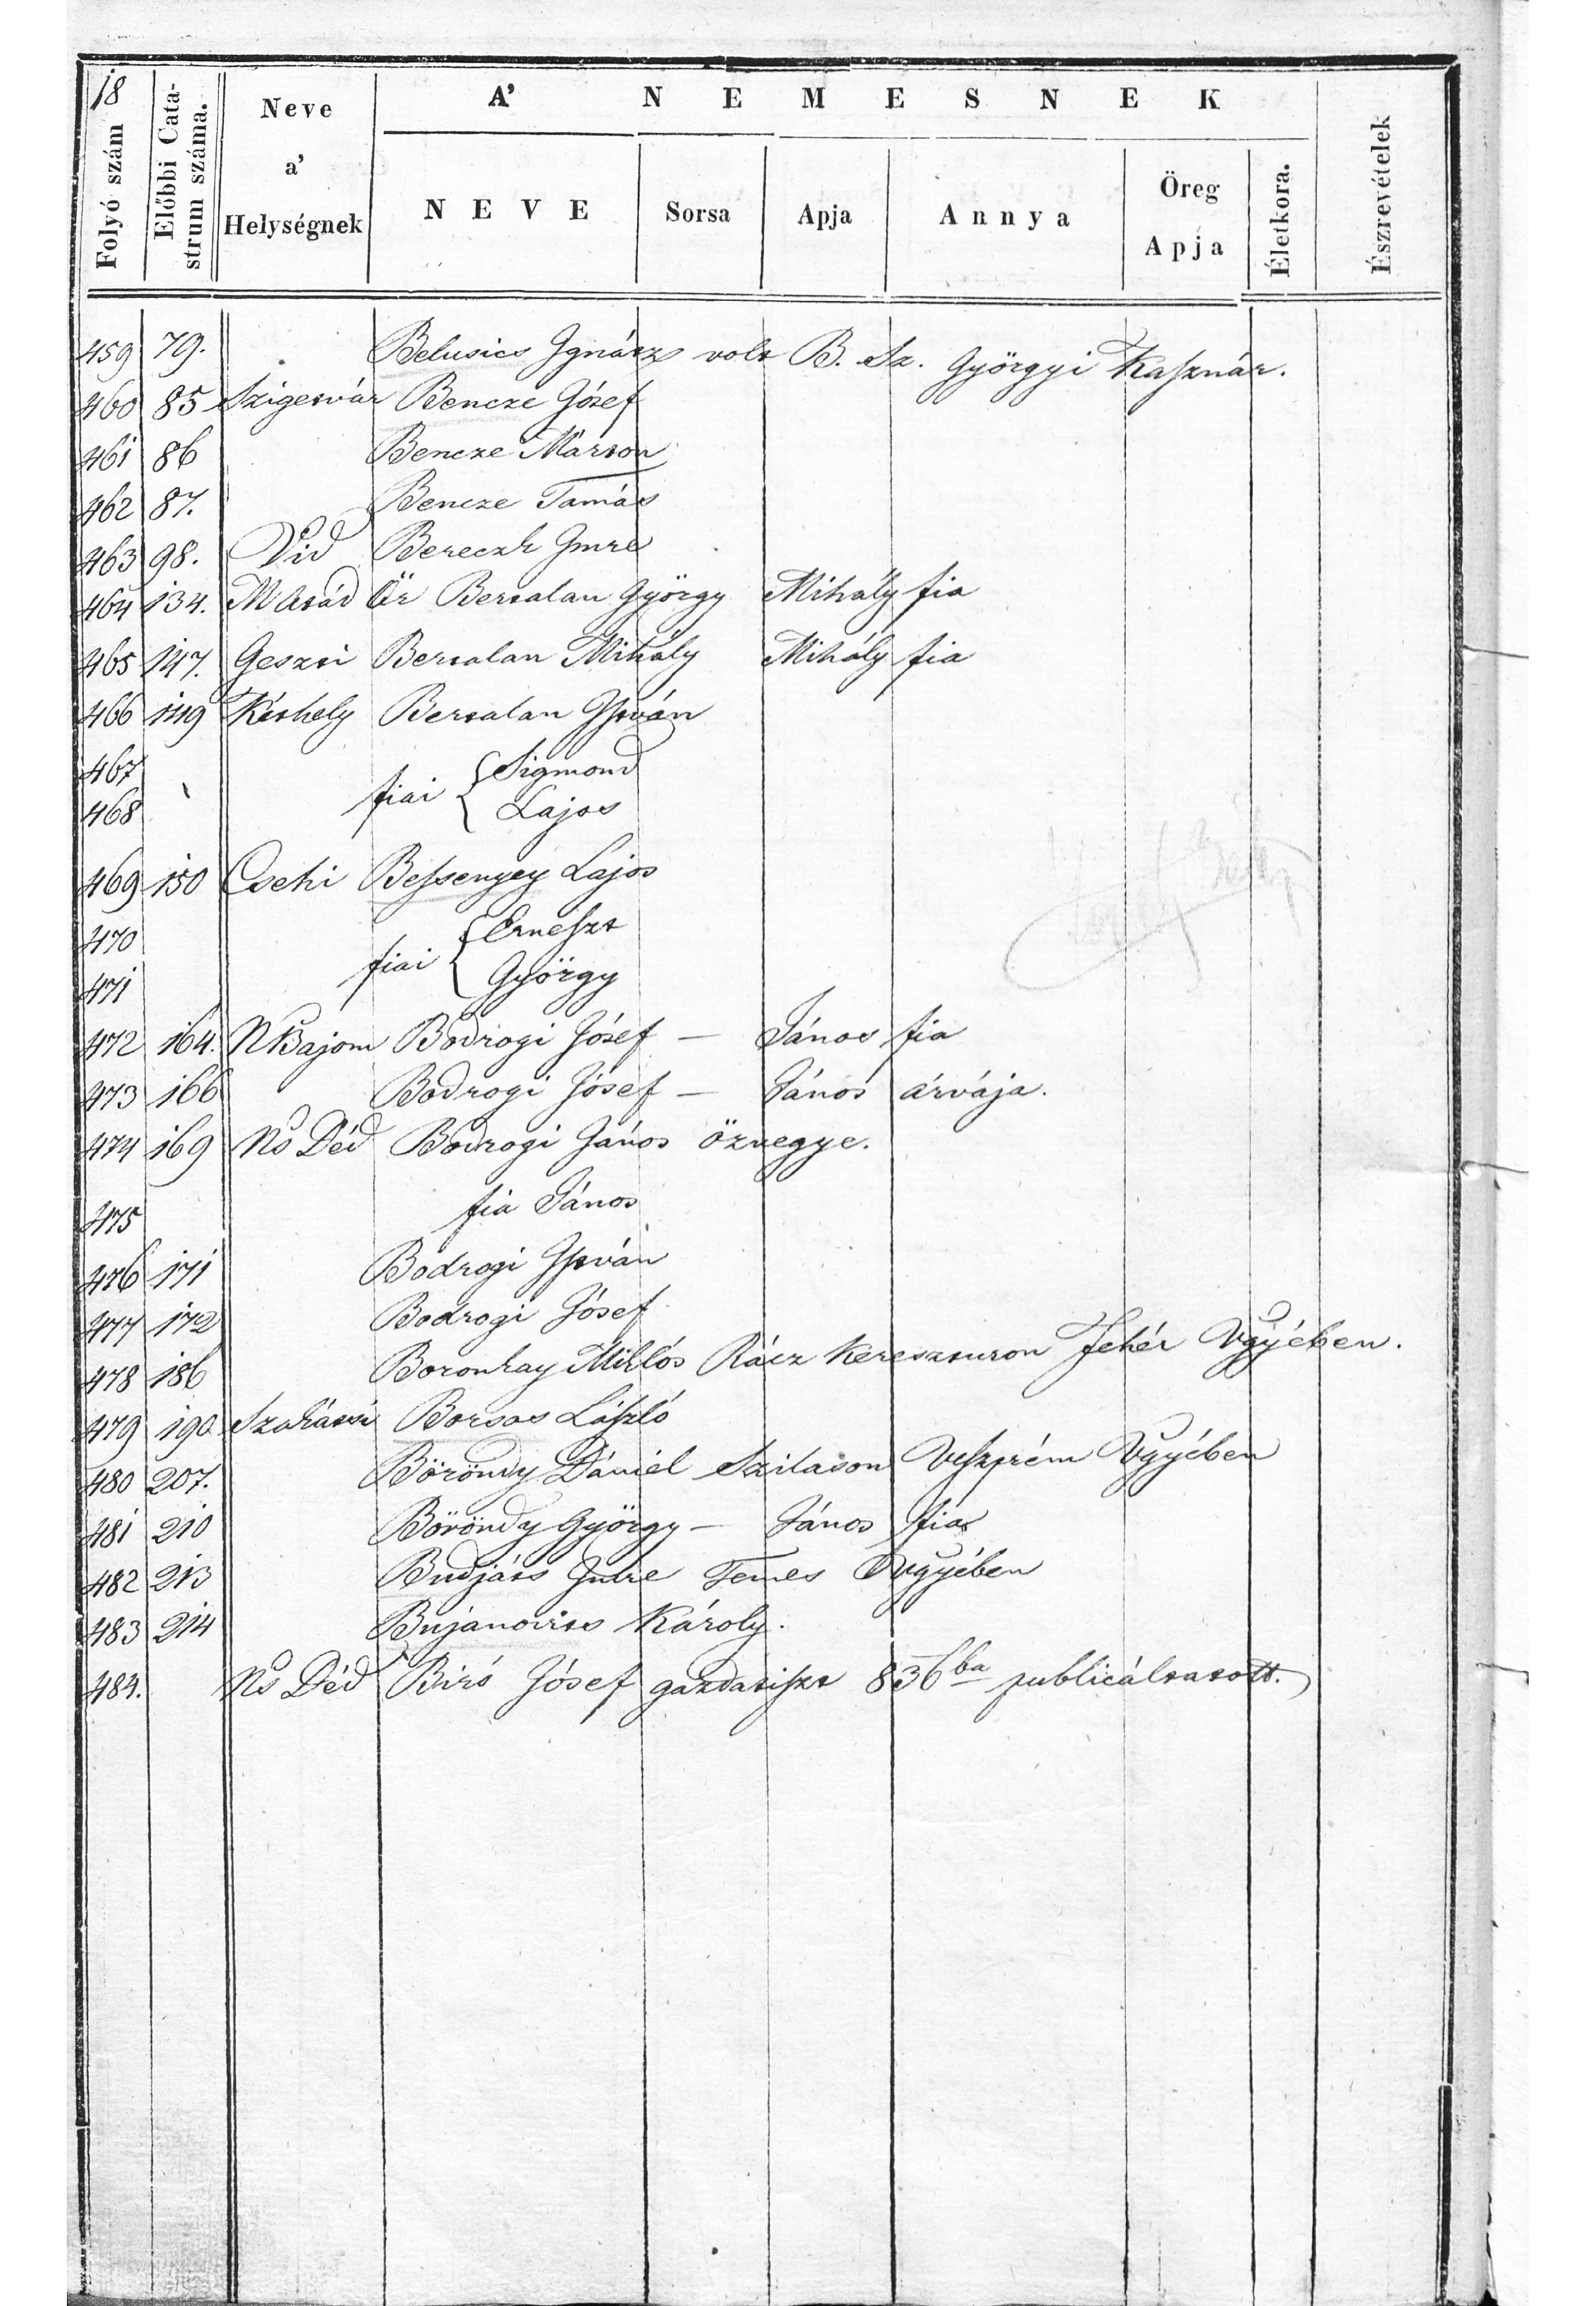 18
A' NEMESNEK
Folyó szám
Előbbi Catastrum száma.
Neve a' Helységnek
NEVE
Sorsa
Apja
Annya
Öreg Apja
Életkora.
Észrevételek
459 79. Belusics Ignácz volt B. Sz. Györgyi Kasznár.
460 85 Szigetvár Bencze Jósef
461 86 Bencze Márton
462 87. Bencze Tamás
463 98. Vid Bereczk Imre
464 134. M Atád Őr Bertalan György Mihály fia
465 147. Geszti Bertalan Mihály Mihály fia
466 149 Késhely Bertalan István
467 fiai { Sigmond
468 Lajos
469 150 Csehi Bessenyey Lajos
470 fiai { Erneszt
471 György
472 164. N Bajom Bodrogi Jósef — János fia
473 166 Bodrogi Jósef — János árvája.
474 169 Ns Déd Bodrogi János özvegye.
475 fia János
476 171 Bodrogi István
477 172 Bodrogi Jósef
478 186 Boronkay Miklós Rácz Keresztúron Fehér Vgyében.
479 190 Szakátsi Borsos László
480 207. Böröndy Dániel Szilason Veszprém Vgyében
481 210 Böröndy György — János fia
482 213 Budjáts Imre Temes Vgyében
483 214 Bujanovits Károly.
484. Ns Déd Biró Jósef gazdatiszt 836ba publicáltatott.